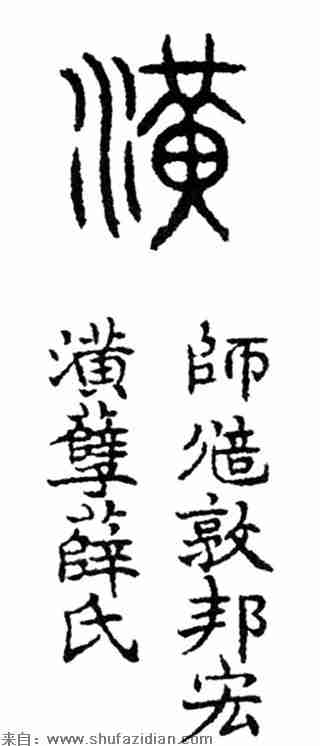 潢
師敦邦宏
潢孽薛氏
来自：www.shufazidian.com